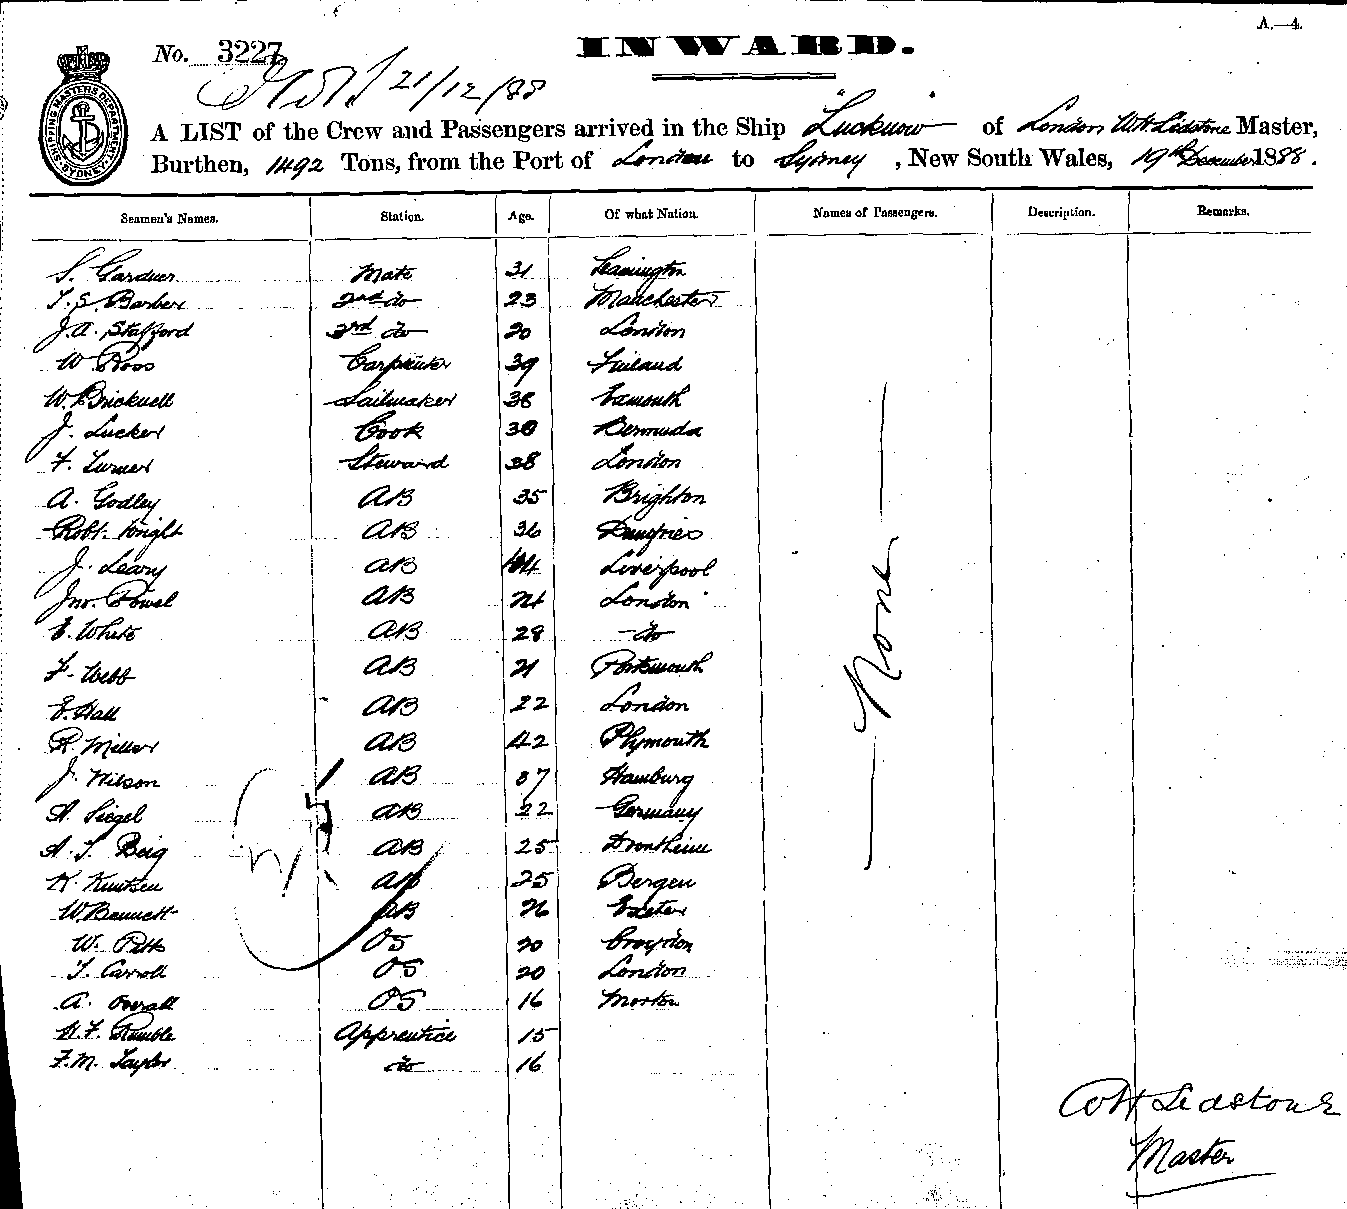 A.—4.
No. 3227
INWARD.
21/12/88
SHIPPING MASTERS DEPARTMENT SYDNEY
A LIST of the Crew and Passengers arrived in the Ship "Lucknow" of London W.H. Ledstone Master,
Burthen, 1492 Tons, from the Port of London to Sydney, New South Wales, 19th December 1888.
Seamen's Names. Station. Age. Of what Nation. Names of Passengers. Description. Remarks.
S. Gardner Mate 31 Leamington
T.S. Barber 2nd do 23 Manchester
J.A. Stafford 3rd do 20 London
W Ross Carpenter 39 Finland
W. Bricknell Sailmaker 38 Exmouth
J. Lucker Cook 30 Bermuda
F. Turner Steward 38 London
A. Godley AB 35 Brighton
Robt. Wright AB 36 Dumfries
J. Leary AB 44 Liverpool
Jno. Powel AB 24 London
E. White AB 28 do
F. Webb AB 21 Portsmouth
E. Hall AB 22 London
R. Miller AB 42 Plymouth
J. Wilson AB 37 Hamburg
A. Siegel AB 22 Germany
A. T. Beig AB 25 Drontheim
K. Knutsen AB 25 Bergen
W. Bennett AB 26 Exeter
W. Pitts OS 20 Croydon
T. Carroll OS 20 London
A. Overall OS 16 Morton
H.F. Rumble Apprentice 15
F.M. Taylor do 16
None
WH Ledstone
Master